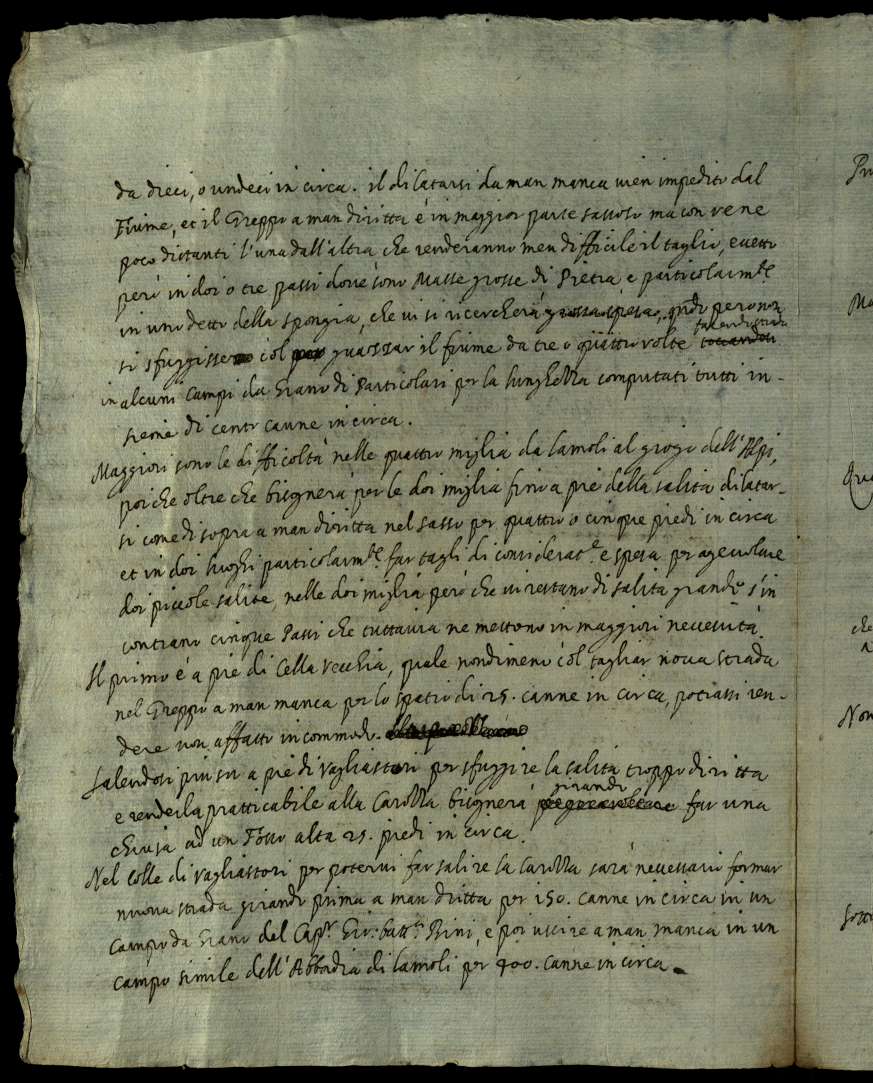 da dieci, o undeci in circa. il dilatarsi da man manca vien impedito dal
Fiume, et il Greppo a man diritta é in maggior parte sassoso ma con vene
poco distanti l'una dall'altra che renderanno men difficile il taglio, eccetto
però in doi o tre passi dove sono Masse grosse di Pietra e particolarmte
in uno detto della spongia, che vi si ricercherà grossa spesa, qndo però non
si sfuggisse col guazzar il fiume da tre o quattro volte facendo strada
in alcuni Campi da Grano di Particolari per la lunghezza computati tutti in-
sieme di cento canne in circa.
Maggiori sono le difficoltà nelle quattro miglia da lamoli al giogo dell'Alpi,
poiche oltre che bisognerà per le doi miglia fino a piè della salita dilatar-
si come di sopra a man diritta nel sasso per quattro o cinque piedi in circa
et in doi luoghi particolarmte far tagli di considerate e spesa per agevolare
doi piccole salite, nelle doi miglia però che vi restano di salita grande s'in
contrano cinque Passi che tuttavia ne mettono in maggiori necessità.
Il primo é a piè di Cella vecchia, quale nondimeno col tagliar nova strada
nel Greppo a man manca per lo spatio di 25. canne in circa, potrassi ren-
dere non affatto incommodo.
Salendosi piu su a piè di Vagliastori per sfuggire la salita troppo diritta
e renderla pratticabile alla Carozza bisognerà girando far una
chiusa ad un Fosso alta 25. piedi in circa.
Nel Colle di Vagliastori per potervi far salire la Carozza sarà necessario formar
nuova strada girando prima a man dritta per 150. canne in circa in un
Campo da Grano del Capn Gio: Battā Bini, e poi uscire a man manca in un
campo simile dell'Abbadia di lamoli per 400. canne in circa.